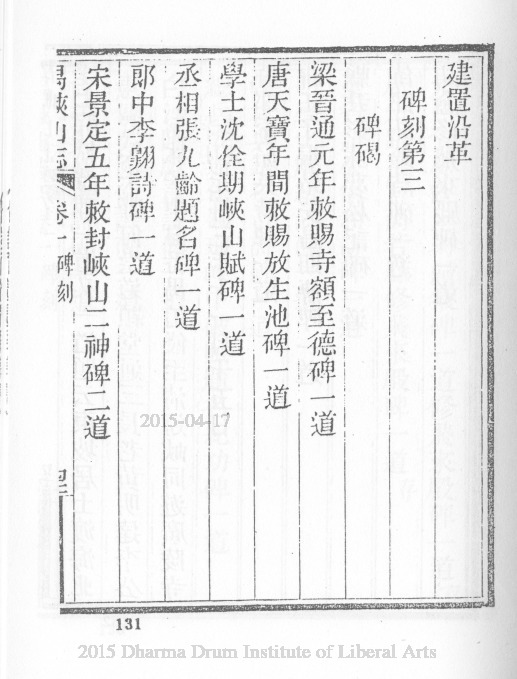 建置沿革
碑刻第三
碑碣
梁晉通元年敕賜寺額至德碑一道
唐天寶年間敕賜放生池碑一道
學士沈佺期峽山賦碑一道
丞相張九齡題名碑一道
郎中李翱詩碑一道
宋景定五年敕封峽山二神碑二道
禺峽山志 卷一 碑刻
2015-04-17
131
2015 Dharma Drum Institute of Liberal Arts